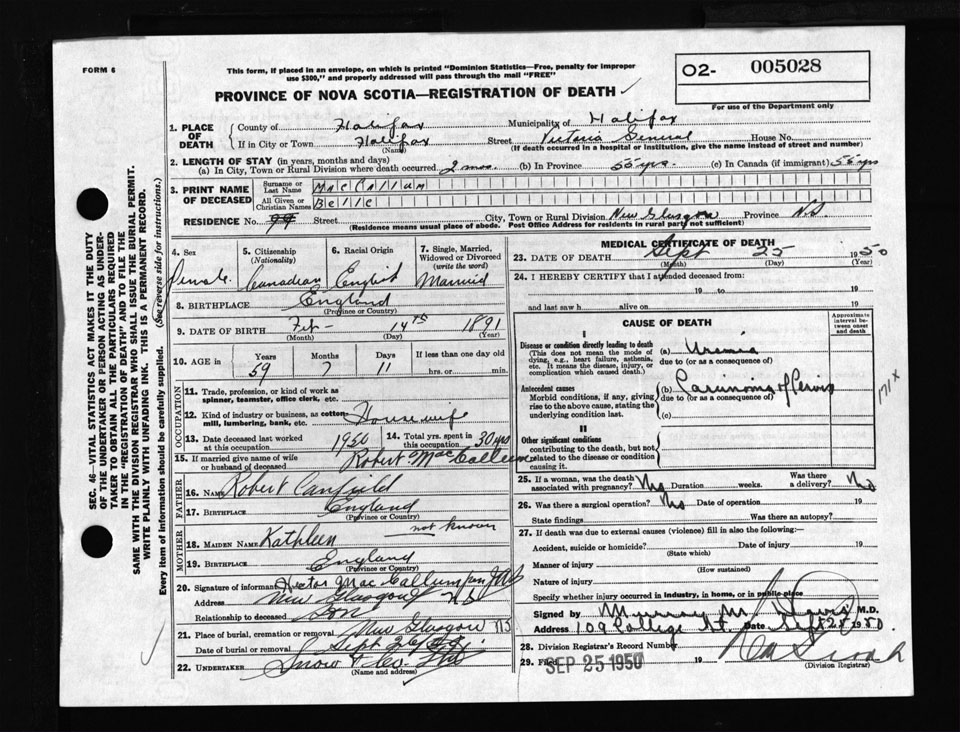 FORM 6
This form, if placed in an envelope, on which is printed "Dominion Statistics—Free, penalty for improper
use $300," and properly addressed will pass through the mail "FREE"
PROVINCE OF NOVA SCOTIA—REGISTRATION OF DEATH
02- 005028
For use of the Department only
1. PLACE OF DEATH
County of Halifax Municipality of Halifax
If in City or Town Halifax Street Victoria General House No.
(Name) (If death occurred in a hospital or institution, give the name instead of street and number)
2. LENGTH OF STAY (in years, months and days)
(a) In City, Town or Rural Division where death occurred 2 mos. (b) In Province 55 yrs. (c) In Canada (if immigrant) 55 yrs
3. PRINT NAME OF DECEASED
Surname or Last Name MacCallum
All Given or Christian Names Belle
RESIDENCE No. Street City, Town or Rural Division New Glasgow Province N.S
(Residence means usual place of abode. Post Office Address for residents in rural parts not sufficient)
4. Sex Female
5. Citizenship (Nationality) Canadian
6. Racial Origin English
7. Single, Married, Widowed or Divorced (write the word) Married
8. BIRTHPLACE England
(Province or Country)
9. DATE OF BIRTH Feb- 14th 1891
(Month) (Day) (Year)
10. AGE in Years 59 Months 7 Days 11 If less than one day old hrs. or min.
OCCUPATION
11. Trade, profession, or kind of work as spinner, teamster, office clerk, etc.
12. Kind of industry or business, as cotton-mill, lumbering, bank, etc. Housewife
13. Date deceased last worked at this occupation 1950 14. Total yrs. spent in this occupation 30 yrs
15. If married give name of wife or husband of deceased Robert MacCallum
FATHER
16. NAME Robert Canfield
17. BIRTHPLACE England
(Province or Country)
MOTHER
18. MAIDEN NAME Kathleen not known
19. BIRTHPLACE England
(Province or Country)
20. Signature of informant Hector MacCallum
Address New Glasgow N.S
Relationship to deceased Son
21. Place of burial, cremation or removal New Glasgow N.S
Date of burial or removal Sept 26
22. UNDERTAKER Snow & Co. Ltd
(Name and address)
MEDICAL CERTIFICATE OF DEATH
23. DATE OF DEATH Sept 25 1950
(Month) (Day) (Year)
24. I HEREBY CERTIFY that I attended deceased from:
19 to 19
and last saw h alive on 19
CAUSE OF DEATH
Approximate interval between onset and death
I
Disease or condition directly leading to death
(This does not mean the mode of dying, e.g., heart failure, asthenia, etc. It means the disease, injury, or complication which caused death.)
(a) Uremia
due to (or as a consequence of)
Antecedent causes
Morbid conditions, if any, giving rise to the above cause, stating the underlying condition last.
(b) Carcinoma of Cervix
due to (or as a consequence of)
(c)
171X
II
Other significant conditions contributing to the death, but not related to the disease or condition causing it.
25. If a woman, was the death associated with pregnancy? No Duration weeks. Was there a delivery? No
26. Was there a surgical operation? No Date of operation 19
State findings Was there an autopsy?
27. If death was due to external causes (violence) fill in also the following:
Accident, suicide or homicide? Date of injury 19
(State which)
Manner of injury
(How sustained)
Nature of injury
Specify whether injury occurred in Industry, in home, or in public place
Signed by Murray M. M.D.
Address 109 College St. Date Sept 25 1950.
28. Division Registrar's Record Number
29. Filed SEP 25 1950 19
(Division Registrar)
SEC. 46—VITAL STATISTICS ACT MAKES IT THE DUTY
OF THE UNDERTAKER OR PERSON ACTING AS UNDER-
TAKER TO OBTAIN ALL THE PARTICULARS REQUIRED
IN THE "REGISTRATION OF DEATH" AND TO FILE THE
SAME WITH THE DIVISION REGISTRAR WHO SHALL ISSUE THE BURIAL PERMIT.
WRITE PLAINLY WITH UNFADING INK. THIS IS A PERMANENT RECORD.
Every item of information should be carefully supplied. (See reverse side for instructions.)